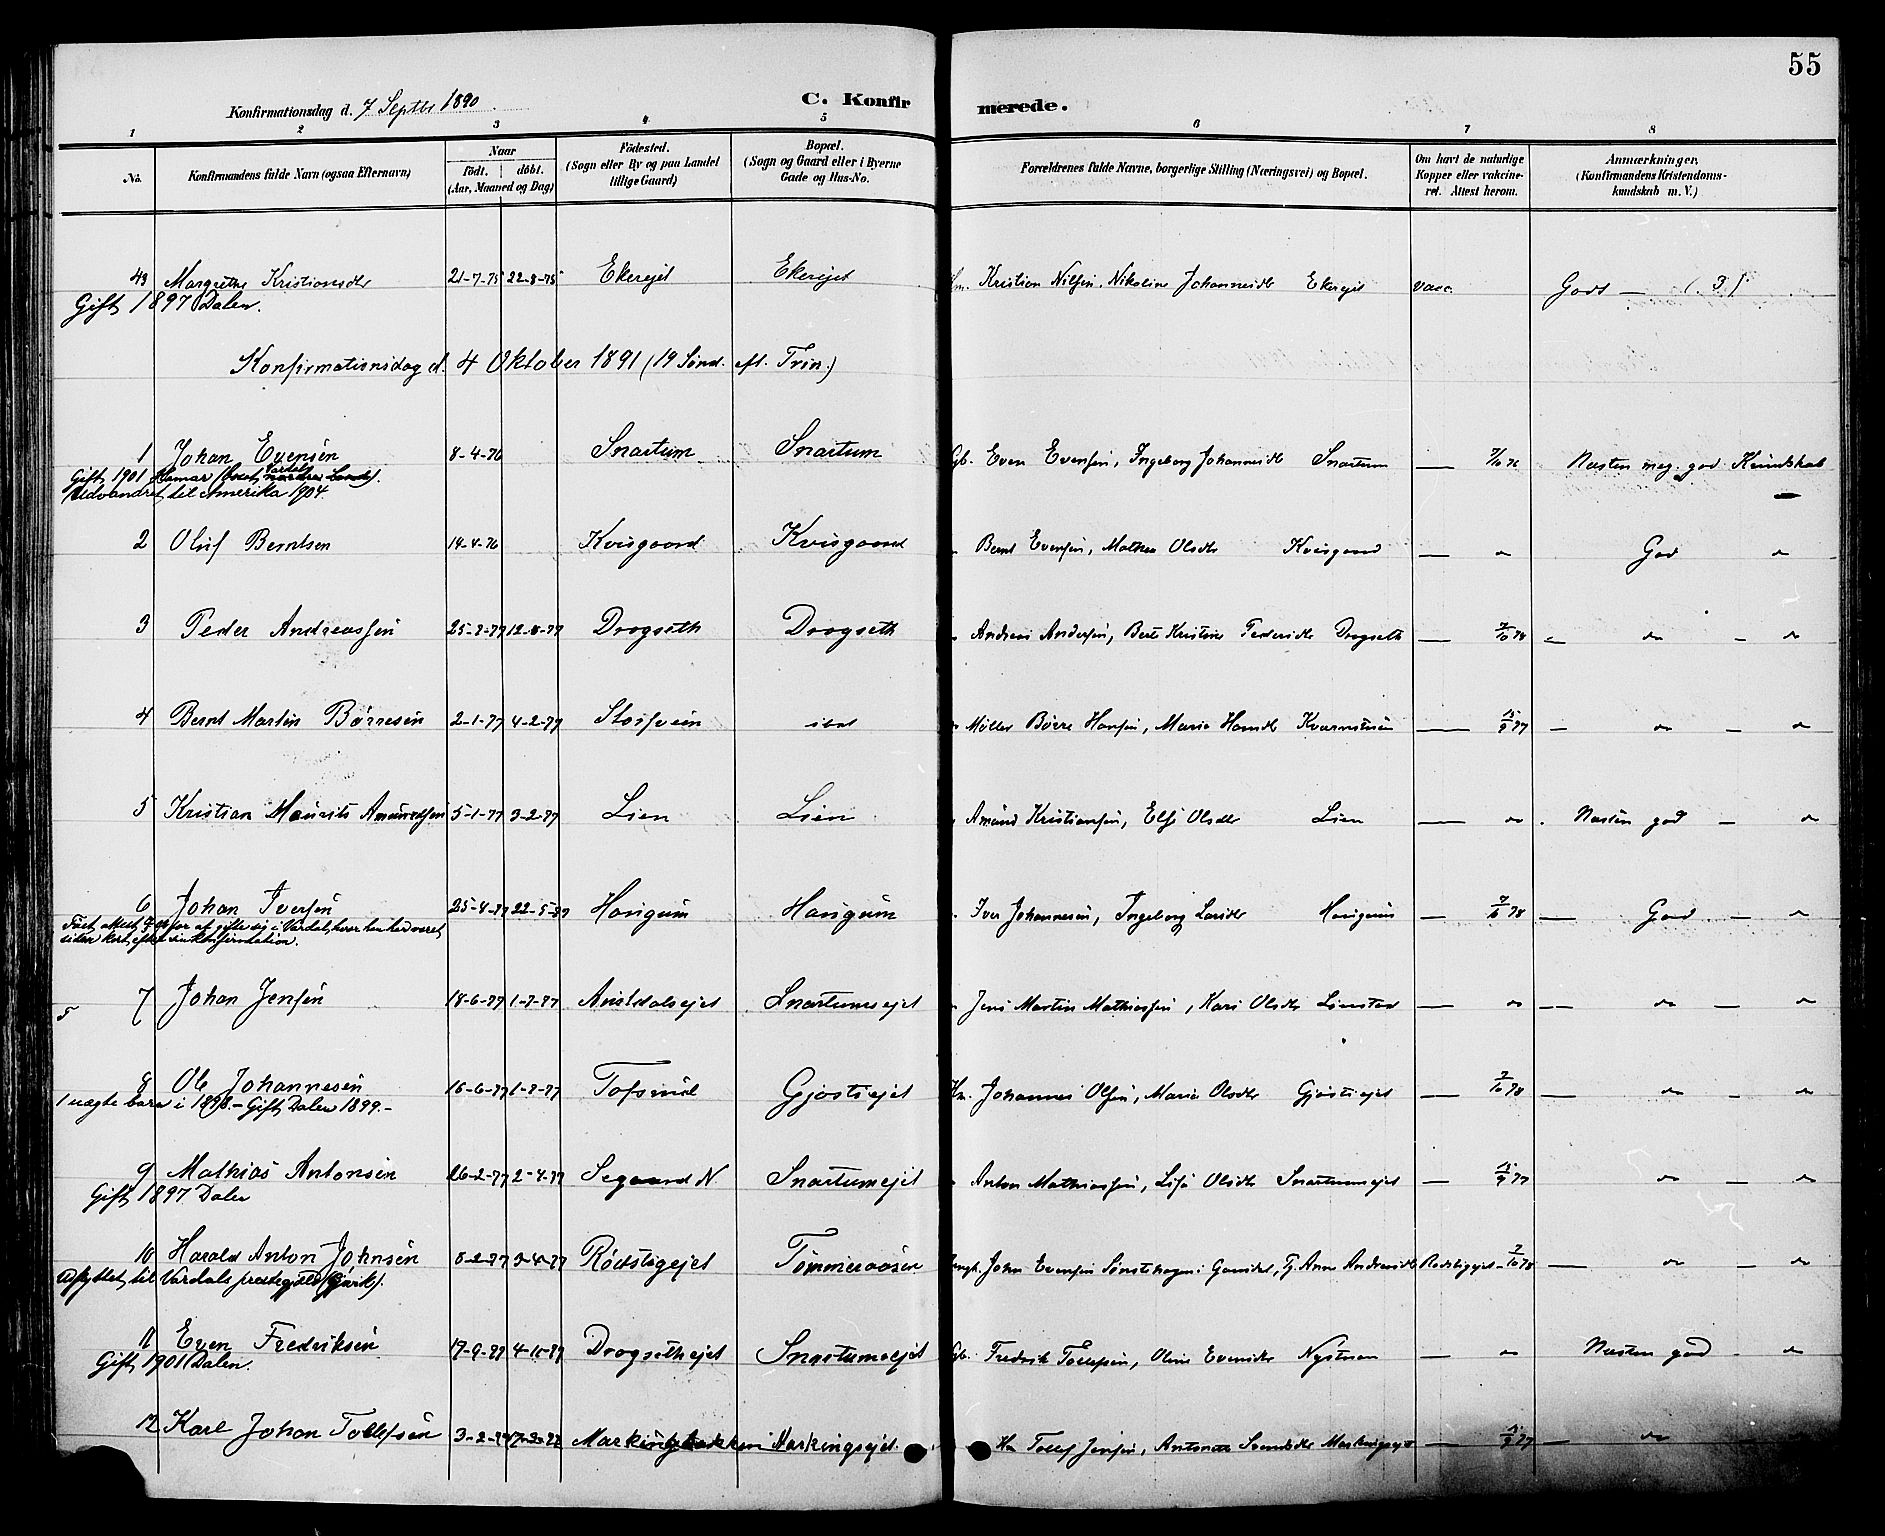 55
Konfirmationsdag d. 7 Septbr 1890
C. Konfirmerede.
1 2 3 4 5 6 7 8
No. Konfirmandens fulde Navn (ogsaa Efternavn) Naar födt. döbt. (Aar, Maaned og Dag) Födested. (Sogn eller By og paa Landet tillige Gaard) Bopæl. (Sogn og Gaard eller i Byerne Gade og Hus-No. Forældrenes fulde Navne, borgerlige Stilling (Næringsvei) og Bopæl. Om havt de naturlige Kopper eller vakcineret. Attest herom. Anmærkninger, (Konfirmandens Kristendomskundskab m. V.)
43 Margrethe Kristiansdtr 21-7-75 22-8-75 Ekerejet Ekerejet Hm. Kristian Nilsen, Nikoline Johannesdtr Ekerejet vacc. Godt — (3)
Gift 1897 Dalen.
Konfirmationsdag d. 4 Oktober 1891 (19 Sønd. eft. Trin.)
1 Johan Evensen 8-4-76 Snartum Snartum Gb. Even Evensen, Ingeborg Johannesdtr Snartum — 7/10 76 Næsten meg. god Kundskab
Gift 1901 Hamar
Udvandret til Amerika 1904.
2 Oluf Berntsen 14-4-76 Kvisgaard Kvisgaard " Bernt Evensen, Mathea Olsdtr Kvisgaard — " God "
3 Peder Andreassen 25-7-77 12-8-77 Drogseth Drogseth " Andreas Andersen, Berte Kristine Pedersdtr Drogseth — 7/10 78 — " — "
4 Bernt Martin Børresen 2-1-77 4-2-77 ibid " Møller Børre Hansen, Maria Hansdtr — 15/9 77 — " — "
5 Kristian Maurits Amundsen 5-1-77 3-2-77 Lien Lien " Amund Kristiansen, Elsi Olsdtr Lien — " Næsten god — "
6 Johan Iversen 25-4-77 22-5-77 Haugum Haugum " Iver Johannesen, Ingeborg Larsdtr Haugum — 7/10 78 — God — "
for at gifte sig i Vardal, hvor han har været
siden kort efter sin konfirmation.
7 Johan Jensen 18-6-77 1-7-77 Austdalsejet Snartumsejet " Jens Martin Mathiassen, Kari Olsdtr Linstad — " — " — "
8 Ole Johannesen 16-6-77 1-7-77 Gjøstiejet Hm. Johannes Olsen, Maria Olsdtr Gjøstiejet — 7/10 78 — " — "
1 uægte barn i 1898. – Gift Dalen 1899. –
9 Mathias Antonsen 26-2-77 2-4-77 Segaard N. Snartumejet " Anton Mathiassen, Lisa Olsdtr Snartumsejet — 15/9 77 " — "
Gift 1897 Dalen
10 Harald Anton Johnsen 8-2-77 3-4-77 Rødstigejet Tømmeraasen Ungk. John Evensen, Pj. Anne Andersdtr Rødstigejet — 7/10 78 — " — "
Afflyttet til Vardals prestegjeld (Gjøvik).
11 Even Fredriksen 17-9-77 4-11-77 Drogsethejet Snartumsejet Gb. Fredrik Tollefsen, Oline Evensdtr Nystuen — " Næsten god — "
Gift 1901 Dalen.
12 Karl Johan Tollefsen 3-2-77 Markingbakken Markingsejet. Hm Tollef Jensen, Antonette Svendsdtr Markingsejet — 15/9 77 — " — "